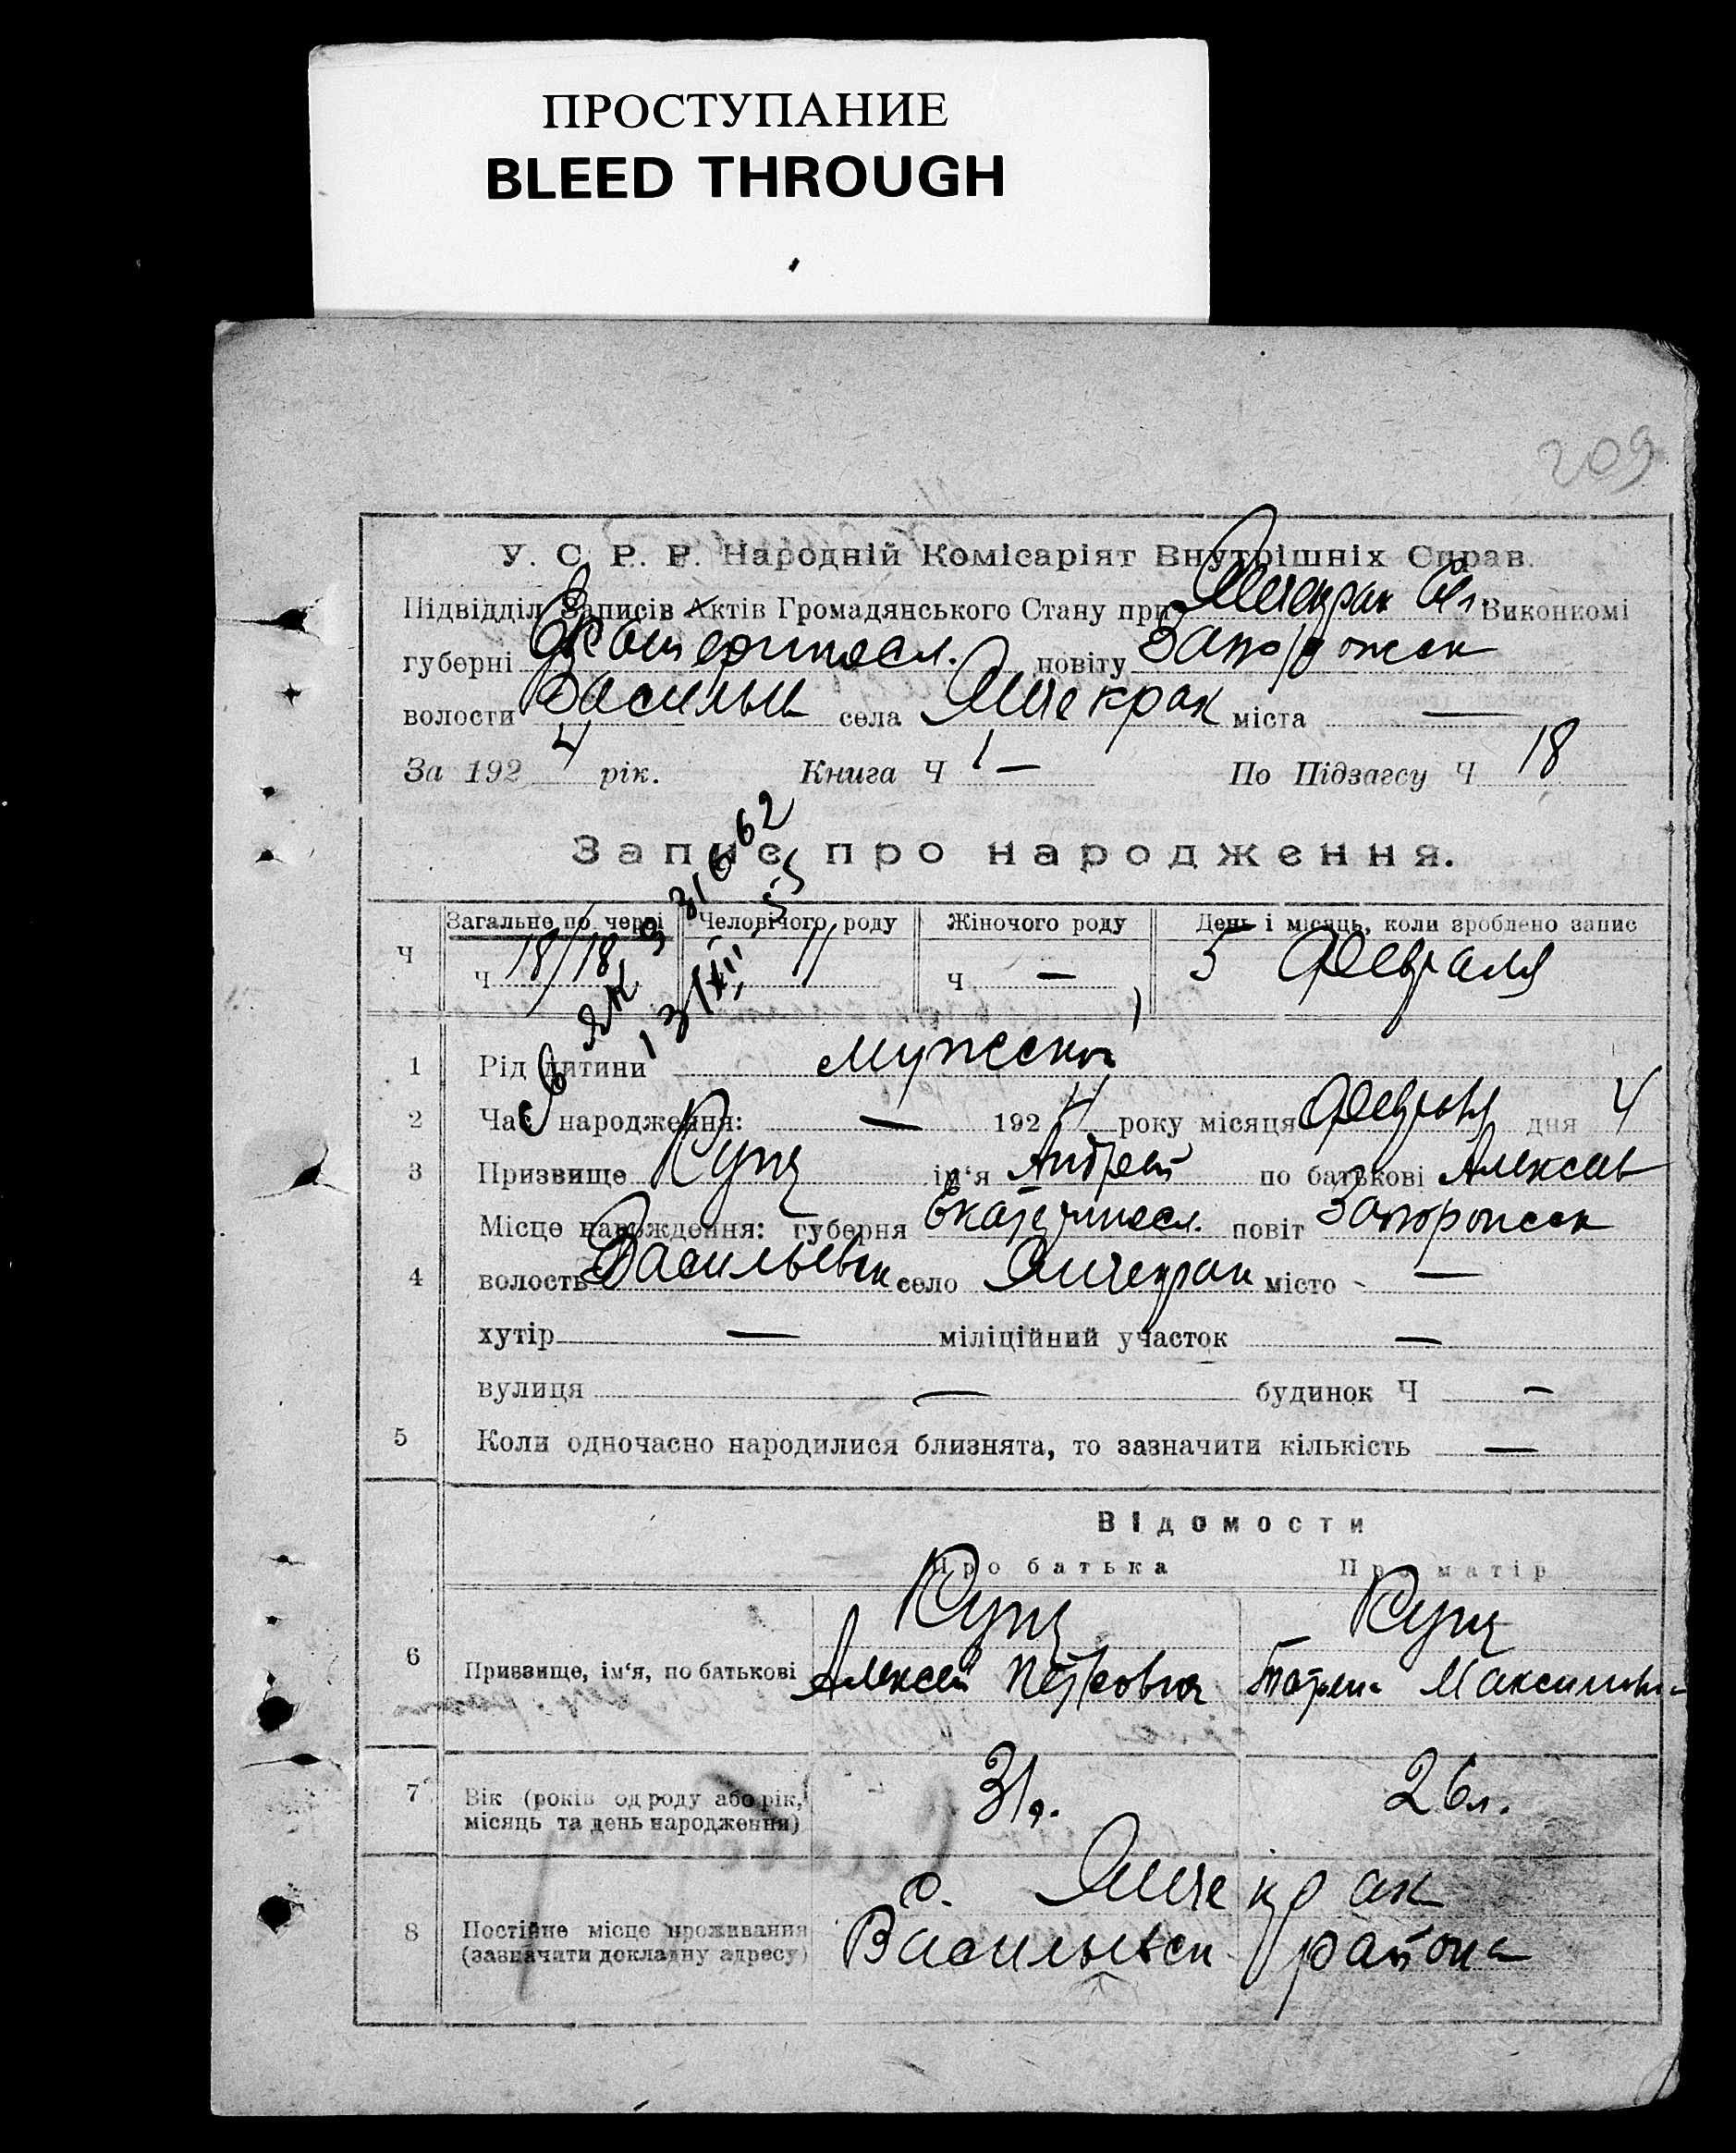 ПРОСТУПАНИЕ
BLEED THROUGH
209
У. С. Р. Р. Народній Комісаріят Внутрішніх Справ.
Підвідділ Записів Актів Громадянського Стану при Янчекрак Виконкомі
губерні Екатериносл. повіту Запорожск
волости Васильев села Янчекрак міста —
За 1924 рік. Книга Ч 1 — По Підзагсу Ч 18
Запис про народження.
Ч Загальне по черзі Человічого роду Жіночого роду День і місяць, коли зроблено запис
Ч 18/18 11 Ч — 5 Февраля
1 Рід дитини мужской
2 Час народження: — 1924 року місяця Февраля дня 4
3 Призвище Купц ім'я Андрей по батькові Алексеев
Місце народження: губерня Екатериносл. повіт Запорожск
4 волость Васильевск село Янчекрак місто —
хутір — міліційний участок —
вулиця — будинок Ч —
5 Коли одночасно народилися близнята, то зазначити кількість —
Відомости
Про батька Про матір
Купц Купц
6 Призвище, ім'я, по батькові Алексей Петрович Максимовна
7 Вік (років од роду або рік, місяць та день народження) 31 г. 26 л.
8 Постійне місце проживання (зазначити докладну адресу) с. Янчекрак
Васильевск района